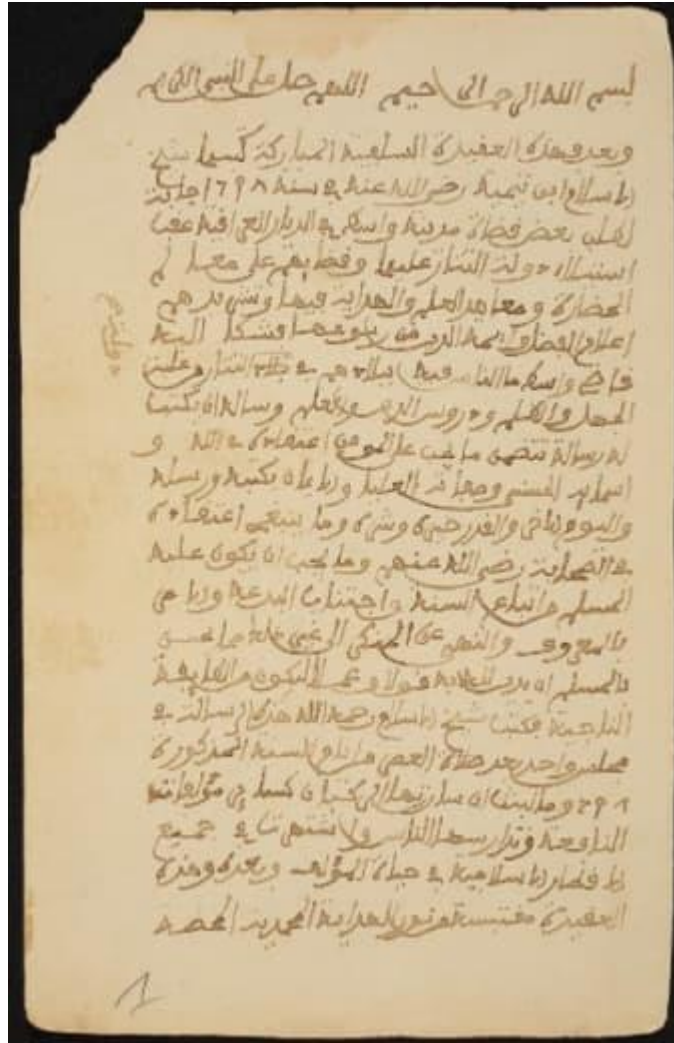 بسم الله الرحمن الرحيم اللهم صل على النبي الكريم
وبعد فهذه العقيدة السلفية المباركة كتبها شيخ
الاسلام ابن تيمية رضي الله عنه في سنة ٦٩٨ اجابة
لطلب بعض قضاة مدينة واسط في الديار العراقية عقب
استيلاء دولة التتار عليها وقضايهم على معالم
الحضارة ومعاهد العلم والهداية فيها وتشريدهم
اعلام الفضل وايمة الدين من ربوعها فشكا اليه
قاضي واسط ما الناس فيه ببلادهم في بلاد التتار وغلبة
الجهل والظلم ودروس الدين والعلم وساله ان يكتب
له رسالة تتضمن ما يجب على المومن اعتقاده في الله و
اسمايه الحسنى وصفاته العليا والايمان بكتبه ورسله
واليوم الاخر والقدر خيره وشره وما ينبغي اعتقاده
في الصحابة رضي الله عنهم وما يجب ان يكون عليه
المسلم من اتباع السنة واجتناب البدعة والامر
بالمعروف والنهي عن المنكر الى غير ذلك مما يحسن
بالمسلم ان يدين لله به قولا وعملا ليكون من الطايفة
الناجية فكتب شيخ الاسلام رحمه الله هذه الرسالة في
مجلس واحد بعد صلاة العصر من ايام السنة المذكورة
٦٩٨ وما لبث ان سارت بها الركبان كساير مؤلفاته
النافعة وتدارسها الناس واشتهرت في جميع
الاقطار الاسلامية في حياة المؤلف وبعده وهذه
العقيدة مقتبسة من نور الهداية المحمدية المحضة
1